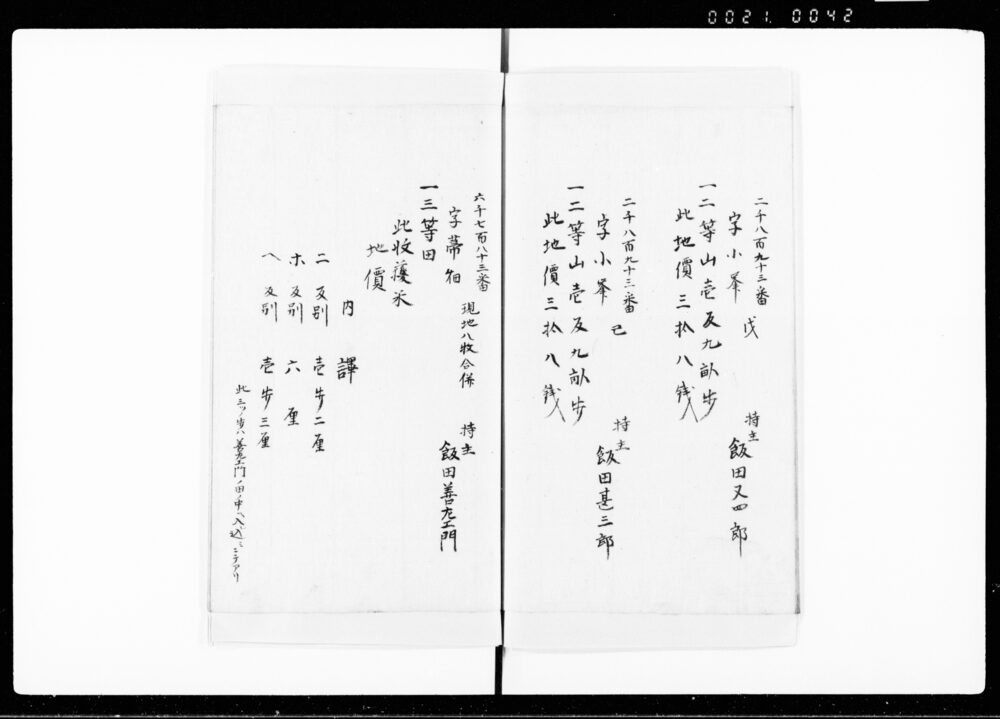 0021. 0042
二千八百九十三番 戊
字小峯
一二等山壱反九畝歩
此地價三拾八銭
持主
飯田又四郎
二千八百九十三番 己
字小峯
一二等山壱反九畝歩
此地價三拾八銭
持主
飯田甚三郎
六千七百八十三番
字蕎畑
現地八枚合併
一三等田
此收穫米
地價
持主
飯田善左エ門
内譯
ニ 反別 壱歩二厘
ホ 反別 六厘
ヘ 反別 壱歩三厘
此三ツノ歩ハ善左エ門ノ田ノ中ヘ入込ミニテアリ